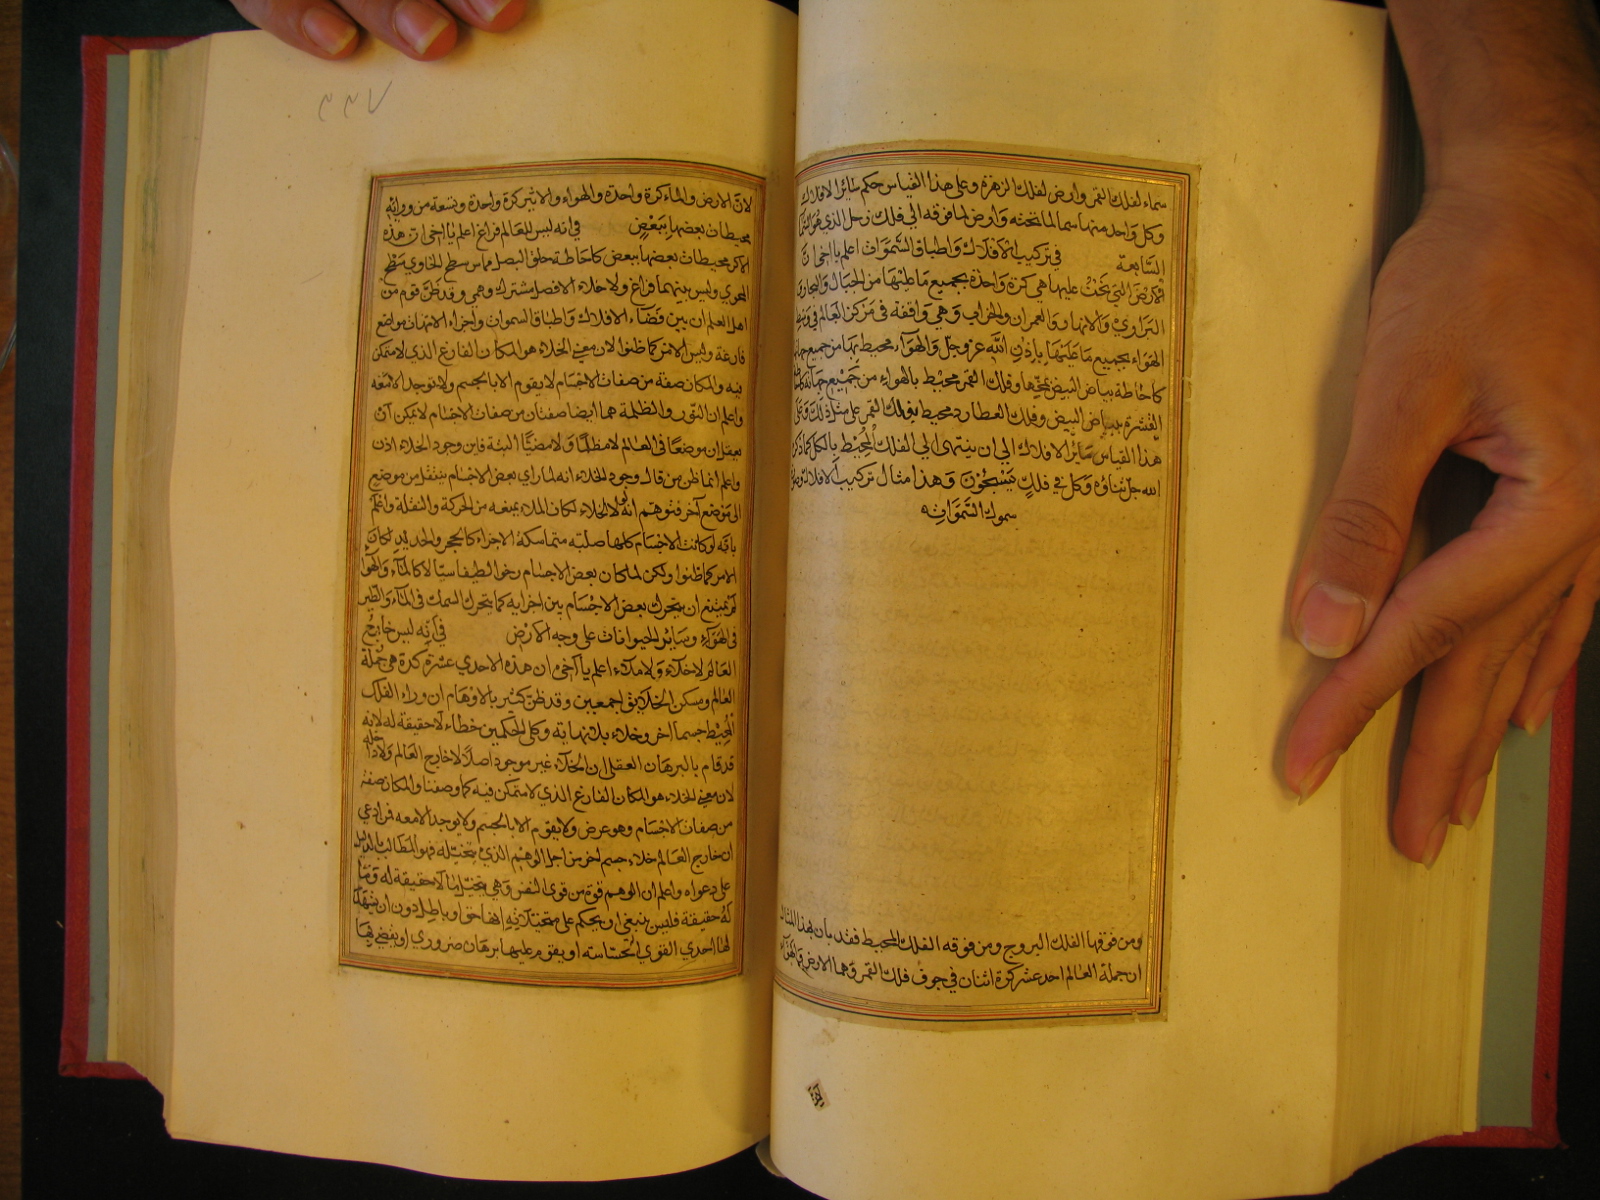 سماء لفلك القمر وارض لفلك الزهرة وعلى هذا القياس حكم سائر الافلاك
وكل واحد منها سما لما تحته وارض لما فوقه الى فلك زحل الذي هو السما
السابعة في تركيب الافلاك واطباق السموات اعلم يا اخي ان
الارض التي نحن عليها هي كرة واحدة بجميع ما عليها من الجبال والبحار و
البراري والانهار والعمران والخراب وهي واقفة في مركز العالم في وسط
الهواء بجميع ما عليها باذن الله عز وجل والهواء محيط بها من جميع جهاتها
كاحاطة بياض البيض بمحها وفلك القمر محيط بالهواء من جميع جهاته كاحاطة
القشرة ببياض البيض وفلك العطارد محيط بفلك القمر على مثال ذلك وعلى
هذا القياس سائر الافلاك الى ان ينتهى الى الفلك المحيط بالكل كما ذكر
الله جل ثناؤه وكل في فلك يسبحون وهذا مثال تركيب الافلاك وصورة
سموك السموات
ومن فوقها الفلك البروج ومن فوقه الفلك المحيط فقد بان بهذا المثال
ان جملة العالم احد عشر كرة اثنان في جوف فلك القمر وهما الارض والهواء
٢٢٧
لان الارض والماء كرة واحدة والهواء والاثير كرة واحدة وتسعة من ورائه
محيطات بعضها ببعض في انه ليس للعالم فراغ اعلم يا اخي ان هذه
الاكر محيطات بعضها ببعض كاحاطة حلق البصل مماس سطح الحاوي سطح
المحوي وليس بينهما فراغ ولا خلاء الا فصل مشترك وهمي وقد ظن قوم من
اهل العلم ان بين فضاء الافلاك واطباق السموات واجزاء الامهات مواضع
فارغة وليس الامر كما ظنوا لان معنى الخلاء هو المكان الفارغ الذي لا متمكن
فيه والمكان صفة من صفات الاجسام لا يقوم الا بالجسم ولا توجد الا معه
واعلم ان النور والظلمة هما ايضا صفتان من صفات الاجسام لا يمكن ان
يعقل ان موضعا في العالم لا مظلما ولا مضيئا البتة فاين وجود الخلاء اذن
واعلم انما ظن من قال بوجود الخلاء انه لما راي بعض الاجسام ينتقل من موضع
الى موضع آخر فتوهم انه لولا الخلاء لكان الملاء يمنعه من الحركة والنقلة واعلم
بانه لو كانت الاجسام كلها صلبة متماسكة الاجزاء كالحجر والحديد لكان
الامر كما ظنوا ولكن لما كان بعض الاجسام رخوا لطيفا سيالا كالماء والهواء
لم يمتنع ان يتحرك بعض الاجسام بين اجزايه كما يتحرك السمك في الماء والطير
في الهواء وسائر الحيوانات على وجه الارض في انه ليس خارج
العالم لا خلاء ولا ملاء اعلم يا اخي ان هذه الاحدي عشرة كرة هي جملة
العالم ومسكن الخلايق اجمعين وقد ظن كثير بالاوهام ان وراء الفلك
المحيط جسما آخر وخلاء بلا نهاية وكلى الحكمين خطاء لا حقيقة له لانه
قد قام بالبرهان العقلى ان الخلاء غير موجود اصلا لا خارج العالم ولا داخله
لان معنى الخلاء هو المكان الفارغ الذي لا متمكن فيه كما وصفنا والمكان صفة
من صفات الاجسام وهو عرض ولا يقوم الا بالجسم ولا يوجد الا معه فمن ادعي
ان خارج العالم خلاء جسم اخر من اجل الوهم الذي يتخيله فهو المطالب بالدليل
على دعواه واعلم ان الوهم قوة من قوى النفس وهي يتخيل ما لا حقيقة له وما
له حقيقة فليس ينبغى ان يحكم على متخيلاته انها حق او باطل دون ان يشهد
لها احدي القوي الحساسة او يقوم عليها برهان ضروري او يقضي بها